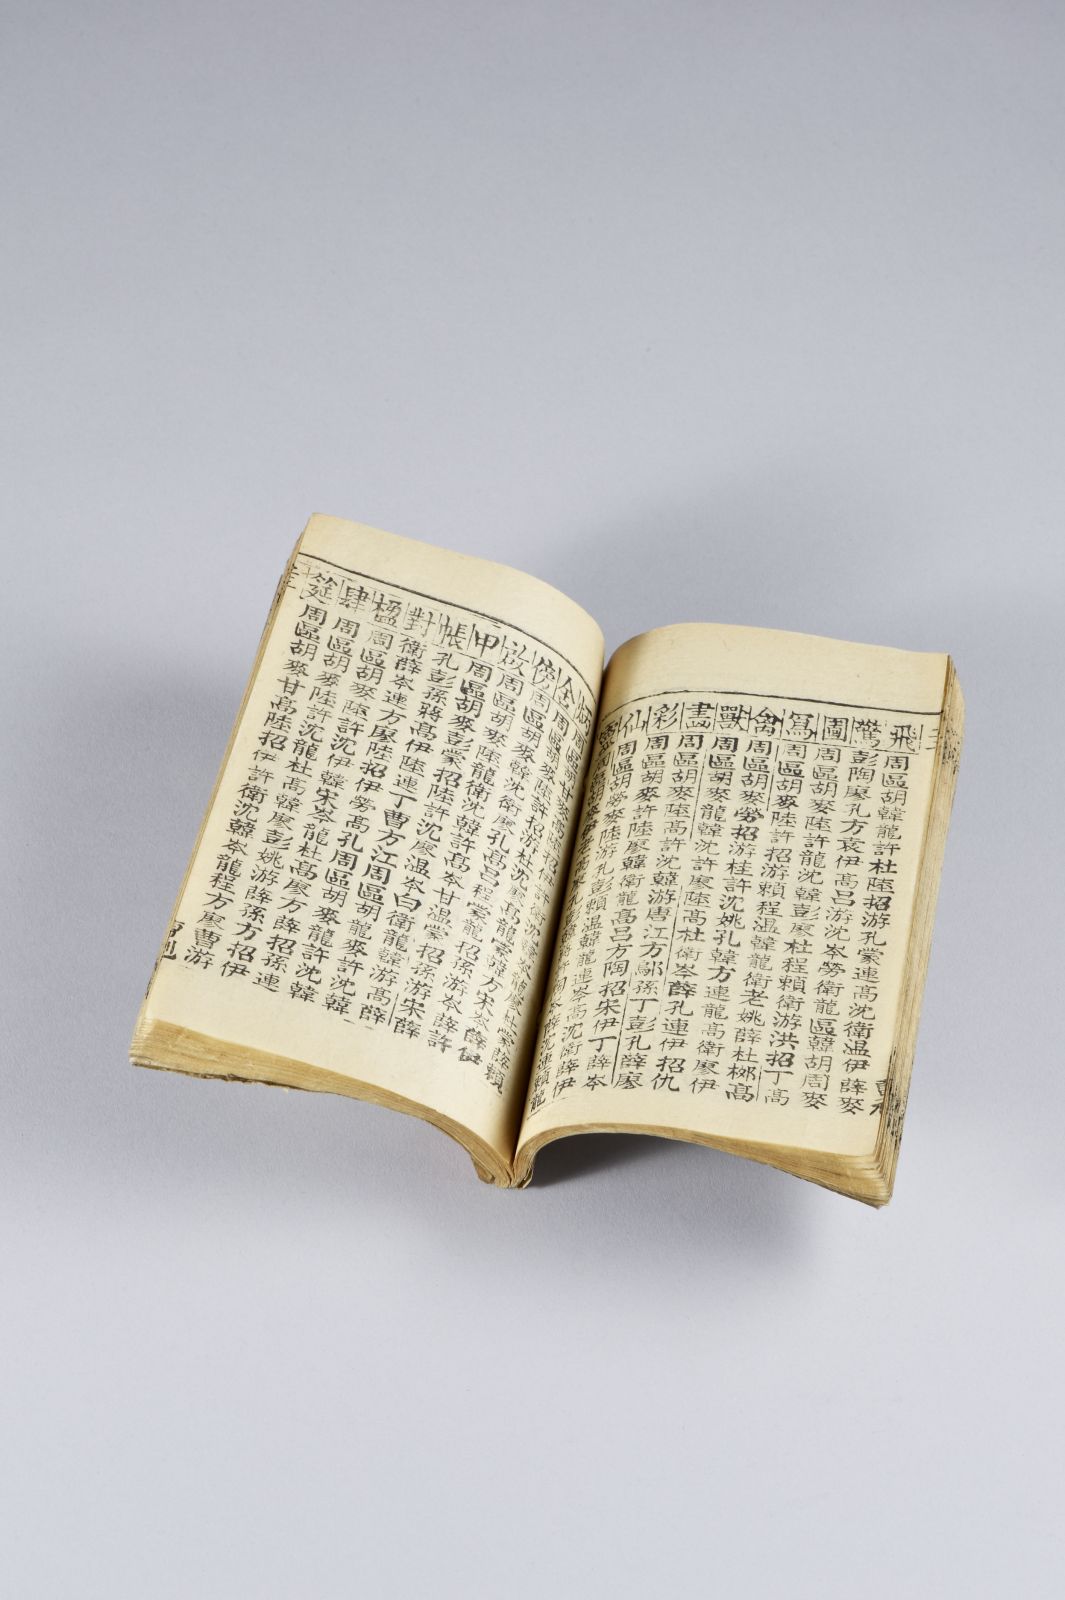 飛 周區胡韓龍許杜陸招游孔蒙連高沈衛溫伊薛麥
驚 彭陶廖孔方袁伊高呂游沈岑勞衛龍區韓胡周麥
圖 周區胡麥陸許龍沈韓彭廖杜程賴衛游洪招丁高
寫 周區胡麥陸許招游賴程溫韓龍衛老姚薛杜鄉高
禽 周區胡麥勞招游桂許沈姚孔韓方連龍高衛廖伊
獸 周區胡麥龍韓沈許廖陸高杜衛岑薛孔連伊招仇
畫 周區胡麥陸高許沈韓游唐江方鄔孫丁彭孔薛廖
彩 周區胡麥許陸廖韓衛龍高呂方陶招宋伊丁薛岑
仙 周區胡勞麥陸游孔彭賴溫韓龍連岑高沈衛薛伊
靈
丙
舍 周區胡麥陸許招游杜沈
傍 周區胡麥韓沈衛廖孔高呂程蒙龍招孫游岑薛許
啟 周區胡麥陸龍衛沈韓許高岑甘溫蒙招孫游宋薛
甲 周區胡麥彭蒙招陸許沈廖溫岑白衛龍韓游高薛
帳 孔彭孫蔣高伊陸連丁曹方江周區胡龍麥許沈韓
對 衛薛岑連方廖陸招伊勞高孔周區胡麥龍許沈韓
楹 周區胡麥陸許沈伊韓宋岑龍杜高廖方薛招孫連
肆 周區胡麥陸許沈龍杜高韓廖彭姚游薛孫方招伊
筵 周區胡麥甘高陸招伊許衛沈韓岑龍程方廖曹游